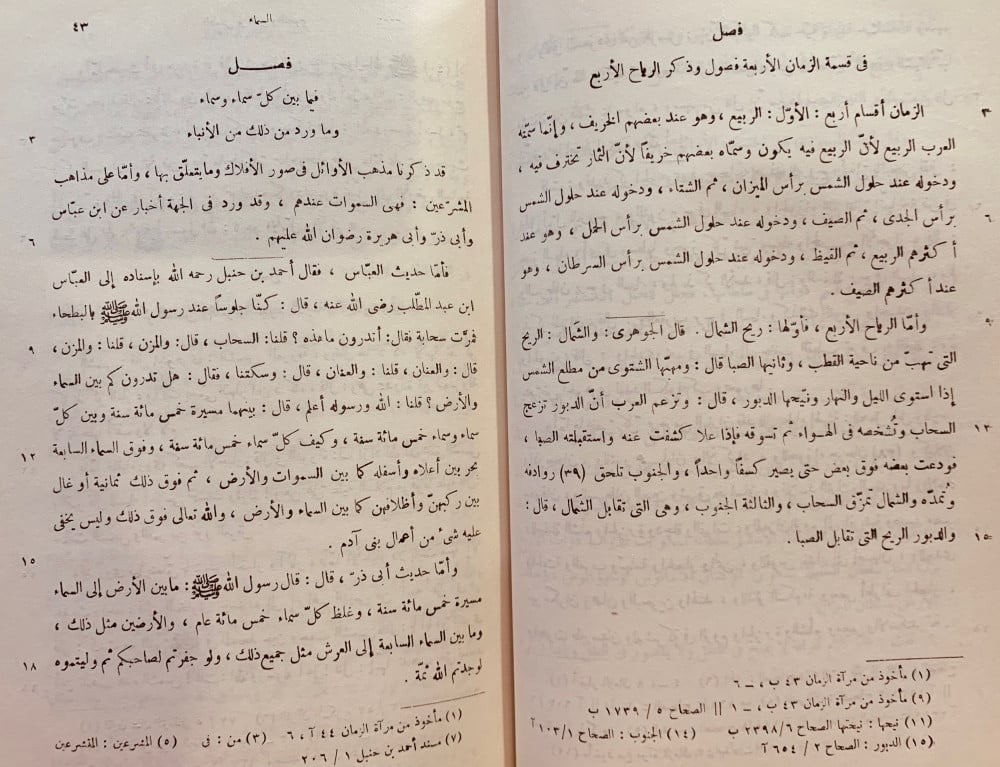 فصل
فى قسمة الزمان الأربعة فصول وذكر الرياح الأربع
الزمان أقسام أربع : الأوّل : الربيع ، وهو عند بعضهم الخريف ، وإنّما سمّته
٣
العرب الربيع لأنّ الربيع فيه يكون وسمّاه بعضهم خريفاً لأنّ الثمار تخترف فيه ،
ودخوله عند حلول الشمس برأس الميزان ، ثم الشتاء ، ودخوله عند حلول الشمس
برأس الجدى ، ثم الصيف ، ودخوله عند حلول الشمس برأس الحمل ، وهو عند
٦
أكثرهم الربيع ، ثم القيظ ، ودخوله عند حلول الشمس برأس السرطان ، وهو
عند أكثرهم الصيف .
وأمّا الرياح الأربع ، فأوّلها : ريح الشمال . قال الجوهرى : والشَمال : الريح
٩
التى تهبّ من ناحية القطب ، وثانيها الصبا قال : ومهبّها الشتوى من مطلع الشمس
إذا استوى الليل والنهار ونيحتها الدبور ، قال : وتزعم العرب أنّ الدبور تزعج
السحاب وتُشخصه فى الهواء ثم تسوقه فإذا علا كشفت عنه واستقبلته الصبا ،
١٢
فودعت بعضه فوق بعض حتى يصير كسفاً واحداً ، والجنوب تلحق (٣٩) روادفه
وتُمدّه والشمال تمزّق السحاب ، والثالثة الجنوب ، وهى التى تقابل الشَمال ، قال :
والدبور الريح التى تقابل الصبا .
١٥
(١) مأخوذ من مرآة الزمان ٤٣ ب ، – ٦
(٩) مأخوذ من مرآة الزمان ٤٣ ب ، – ١ || الصحاح ٥ / ١٧٣٩ ب
(١١) نيحها : نيحتها الصحاح ٦/ ٢٣٩٨ ب (١٤) الجنوب : الصحاح ١٠٣/١ آ
(١٥) الدبور : الصحاح ٢ / ٦٥٤ آ
السماء
٤٣
فصــــل
فيما بين كلّ سماء وسماء
وما ورد من ذلك من الأنباء
٣
قد ذكرنا مذهب الأوائل فى صور الأفلاك ومايتعلّق بها ، وأمّا على مذاهب
المشرّعين : فهى السموات عندهم ، وقد ورد فى الجهة أخبار عن ابن عبّاس
وأبى ذرّ وأبى هريرة رضوان الله عليهم .
٦
فأمّا حديث العبّاس ، فقال أحمد بن حنبل رحمه الله بإسناده إلى العبّاس
ابن عبد المطّلب رضى الله عنه ، قال : كنّا جلوساً عند رسول الله ﷺ بالبطحاء
فمرّت سحابة فقال: أتدرون ماهذه ؟ قلنا: السحاب ، قال: والمزن ، قلنا : والمزن،
٩
قال : والعنان ، قلنا : والعنان ، قال : وسكتنا ، فقال : هل تدرون كم بين السماء
والأرض ؟ قلنا : الله ورسوله أعلم ، قال : بينهما مسيرة خمس مائة سنة وبين كلّ
سماء وسماء خمس مائة سنة ، وكيف كلّ سماء خمس مائة سنة ، وفوق السماء السابعة
١٢
بحر بين أعلاه وأسفله كما بين السموات والأرض ، ثم فوق ذلك ثمانية أوعال
بين ركبهنّ وأظلافهن كما بين السماء والأرض ، والله تعالى فوق ذلك وليس يخفى
عليه شىء من أعمال بنى آدم .
١٥
وأمّا حديث أبى ذرّ ، قال : قال رسول الله ﷺ : مابين الأرض إلى السماء
مسيرة خمس مائة سنة ، وغلظ كلّ سماء خمس مائة عام ، والأرضين مثل ذلك ،
وما بين السماء السابعة إلى العرش مثل جميع ذلك ، ولو حفرتم لصاحبكم ثم وليتموه
١٨
لوجدتم الله ثمّة .
(١) مأخوذ من مرآة الزمان ٤٤ آ ، ٦ – (٣) من : فى (٥) المشرعين : المتشرعين
(٧) مسند أحمد بن حنبل ١ / ٢٠٦